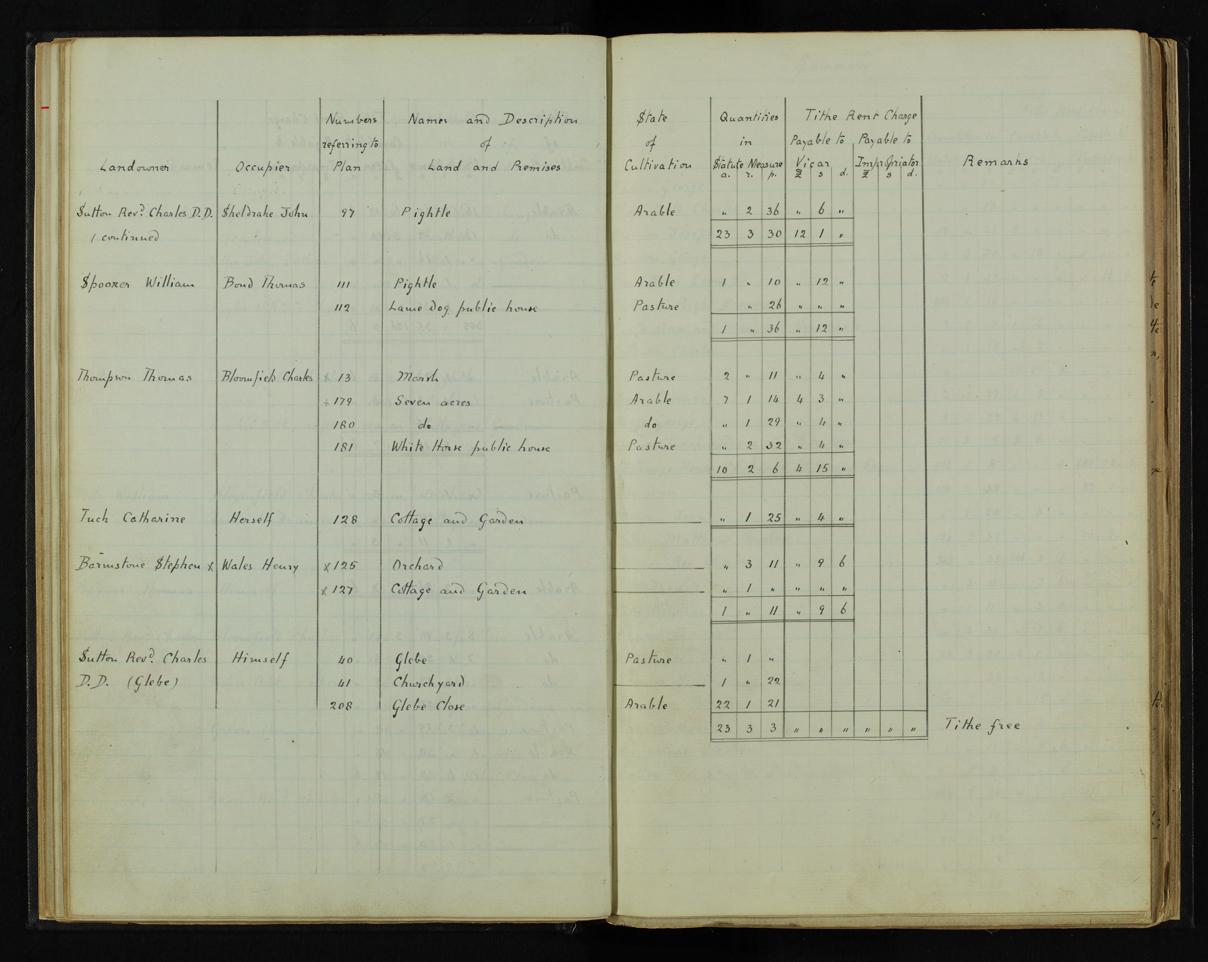 Numbers Names and Description State Quantities Tithe Rent Charge
referring to of of in Payable to Payable to
Landowner Occupier Plan Land and Premises Cultivation Statute Measure Vicar Impropriator Remarks
a. r. p. £ s d. £ s d.
Sutton Revd. Charles D.D. Sheldrake John 97 Pightle Arable " 2 36 " 6 "
/ continued 23 3 30 12 1 "
Spooner William Bond Thomas 111 Pightle Arable 1 " 10 " 12 "
112 Lame Dog public house Pasture " 26 " " "
1 " 36 " 12 "
Thompson Thomas Bloomfield Charles x 13 Marsh Pasture 2 " 11 " 4 "
+ 179 Seven acres Arable 7 1 14 4 3 "
180 do do " 1 29 " 4 "
181 White Horse public house Pasture " 2 32 " 4 "
10 2 6 4 15 "
Tuck Catharine Herself 128 Cottage and Garden " 1 25 " 4 "
Barnstone Stephen x Wales Henry x 125 Orchard " 3 11 " 9 6
x 127 Cottage and Garden " 1 " " " "
1 " 11 " 9 6
Sutton Revd. Charles Himself 40 Glebe Pasture " 1 "
D.D. (Glebe) 41 Churchyard 1 " 22
208 Glebe Close Arable 22 1 21
23 3 3 " " " " " " Tithe free